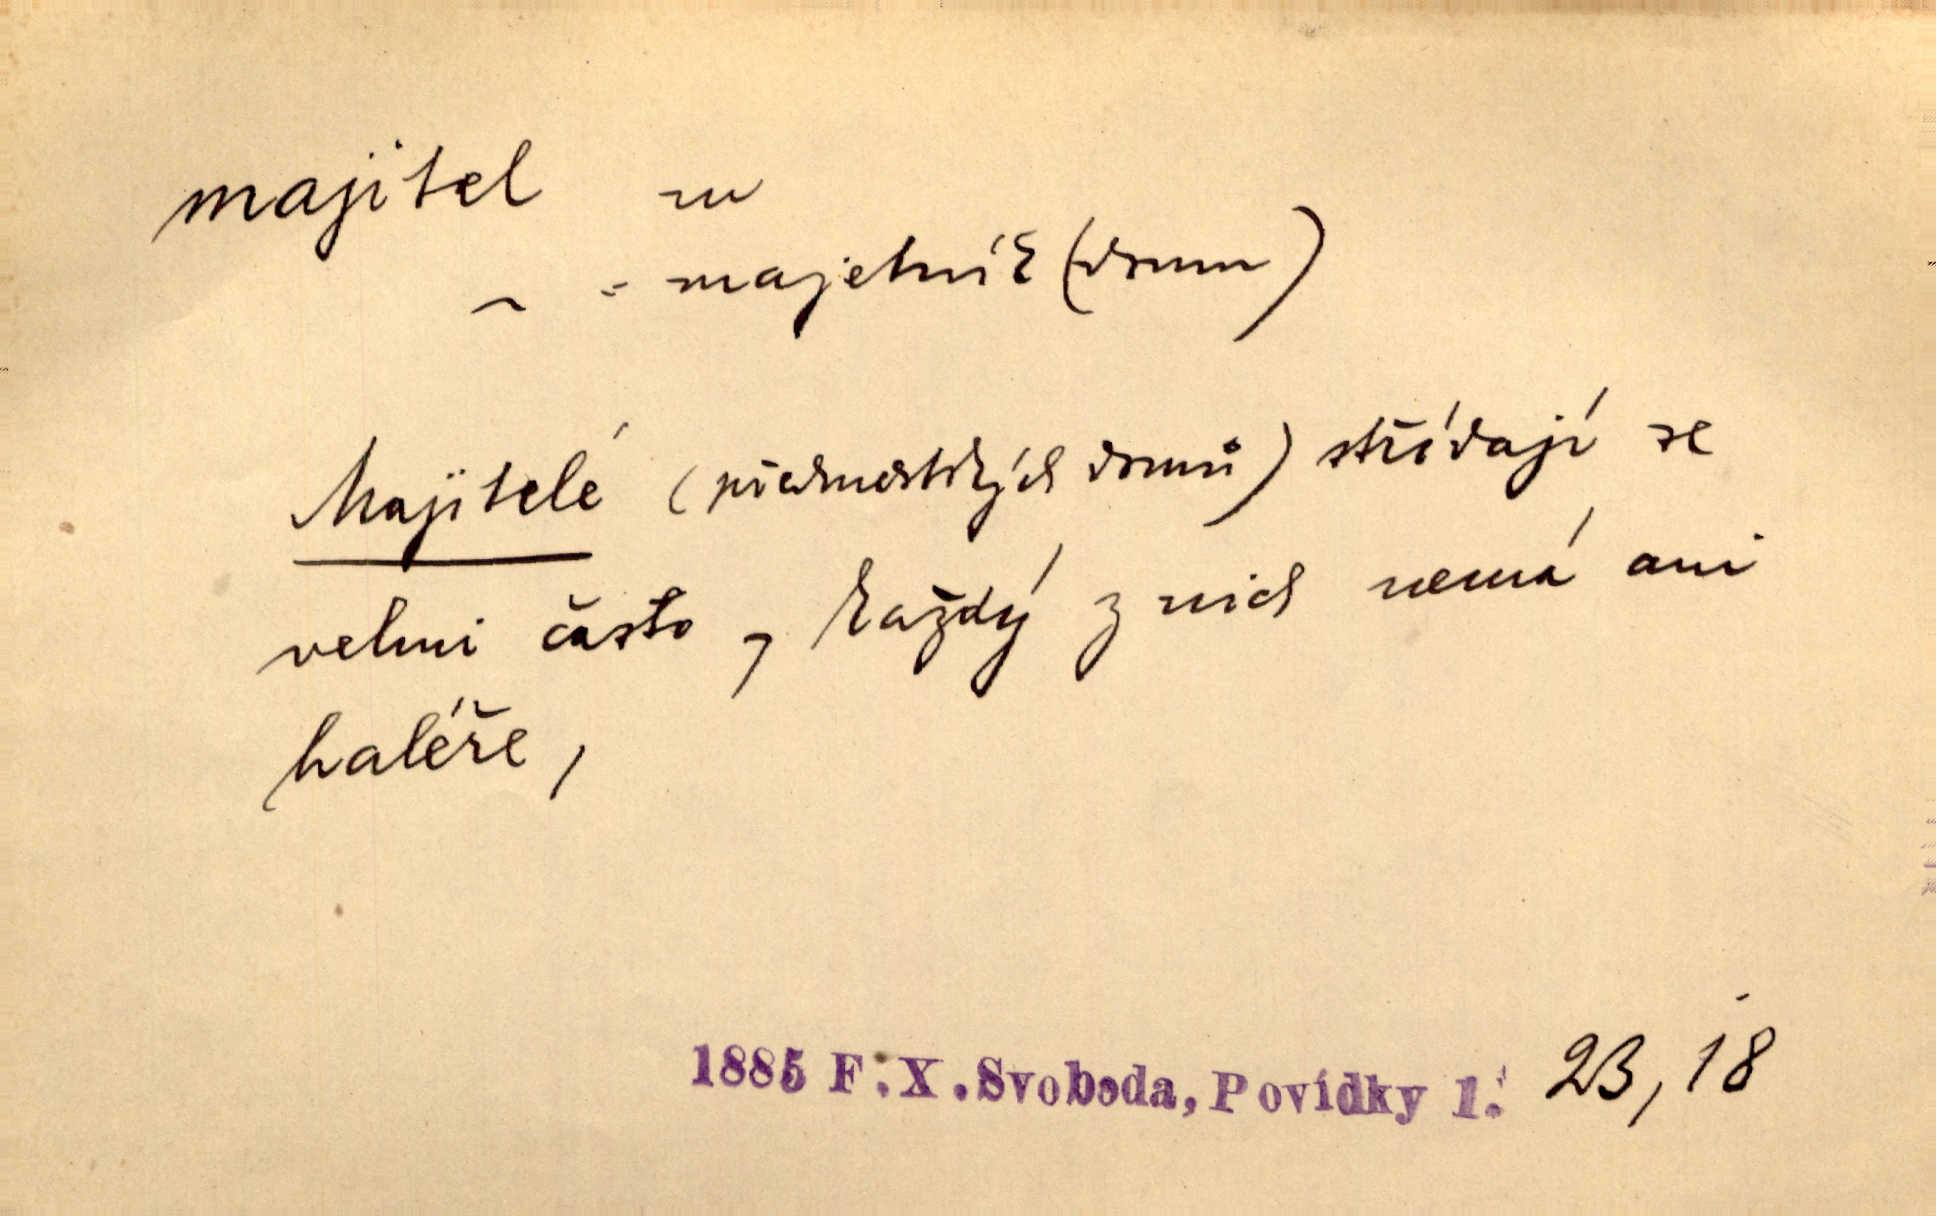 majitel m
~ = majetník (domu)
Majitelé (předměstských domů) střídají se
velmi často, každý z nich nemá ani
haléře,
1885 F.X.Svoboda, Povídky 1. 23, 18